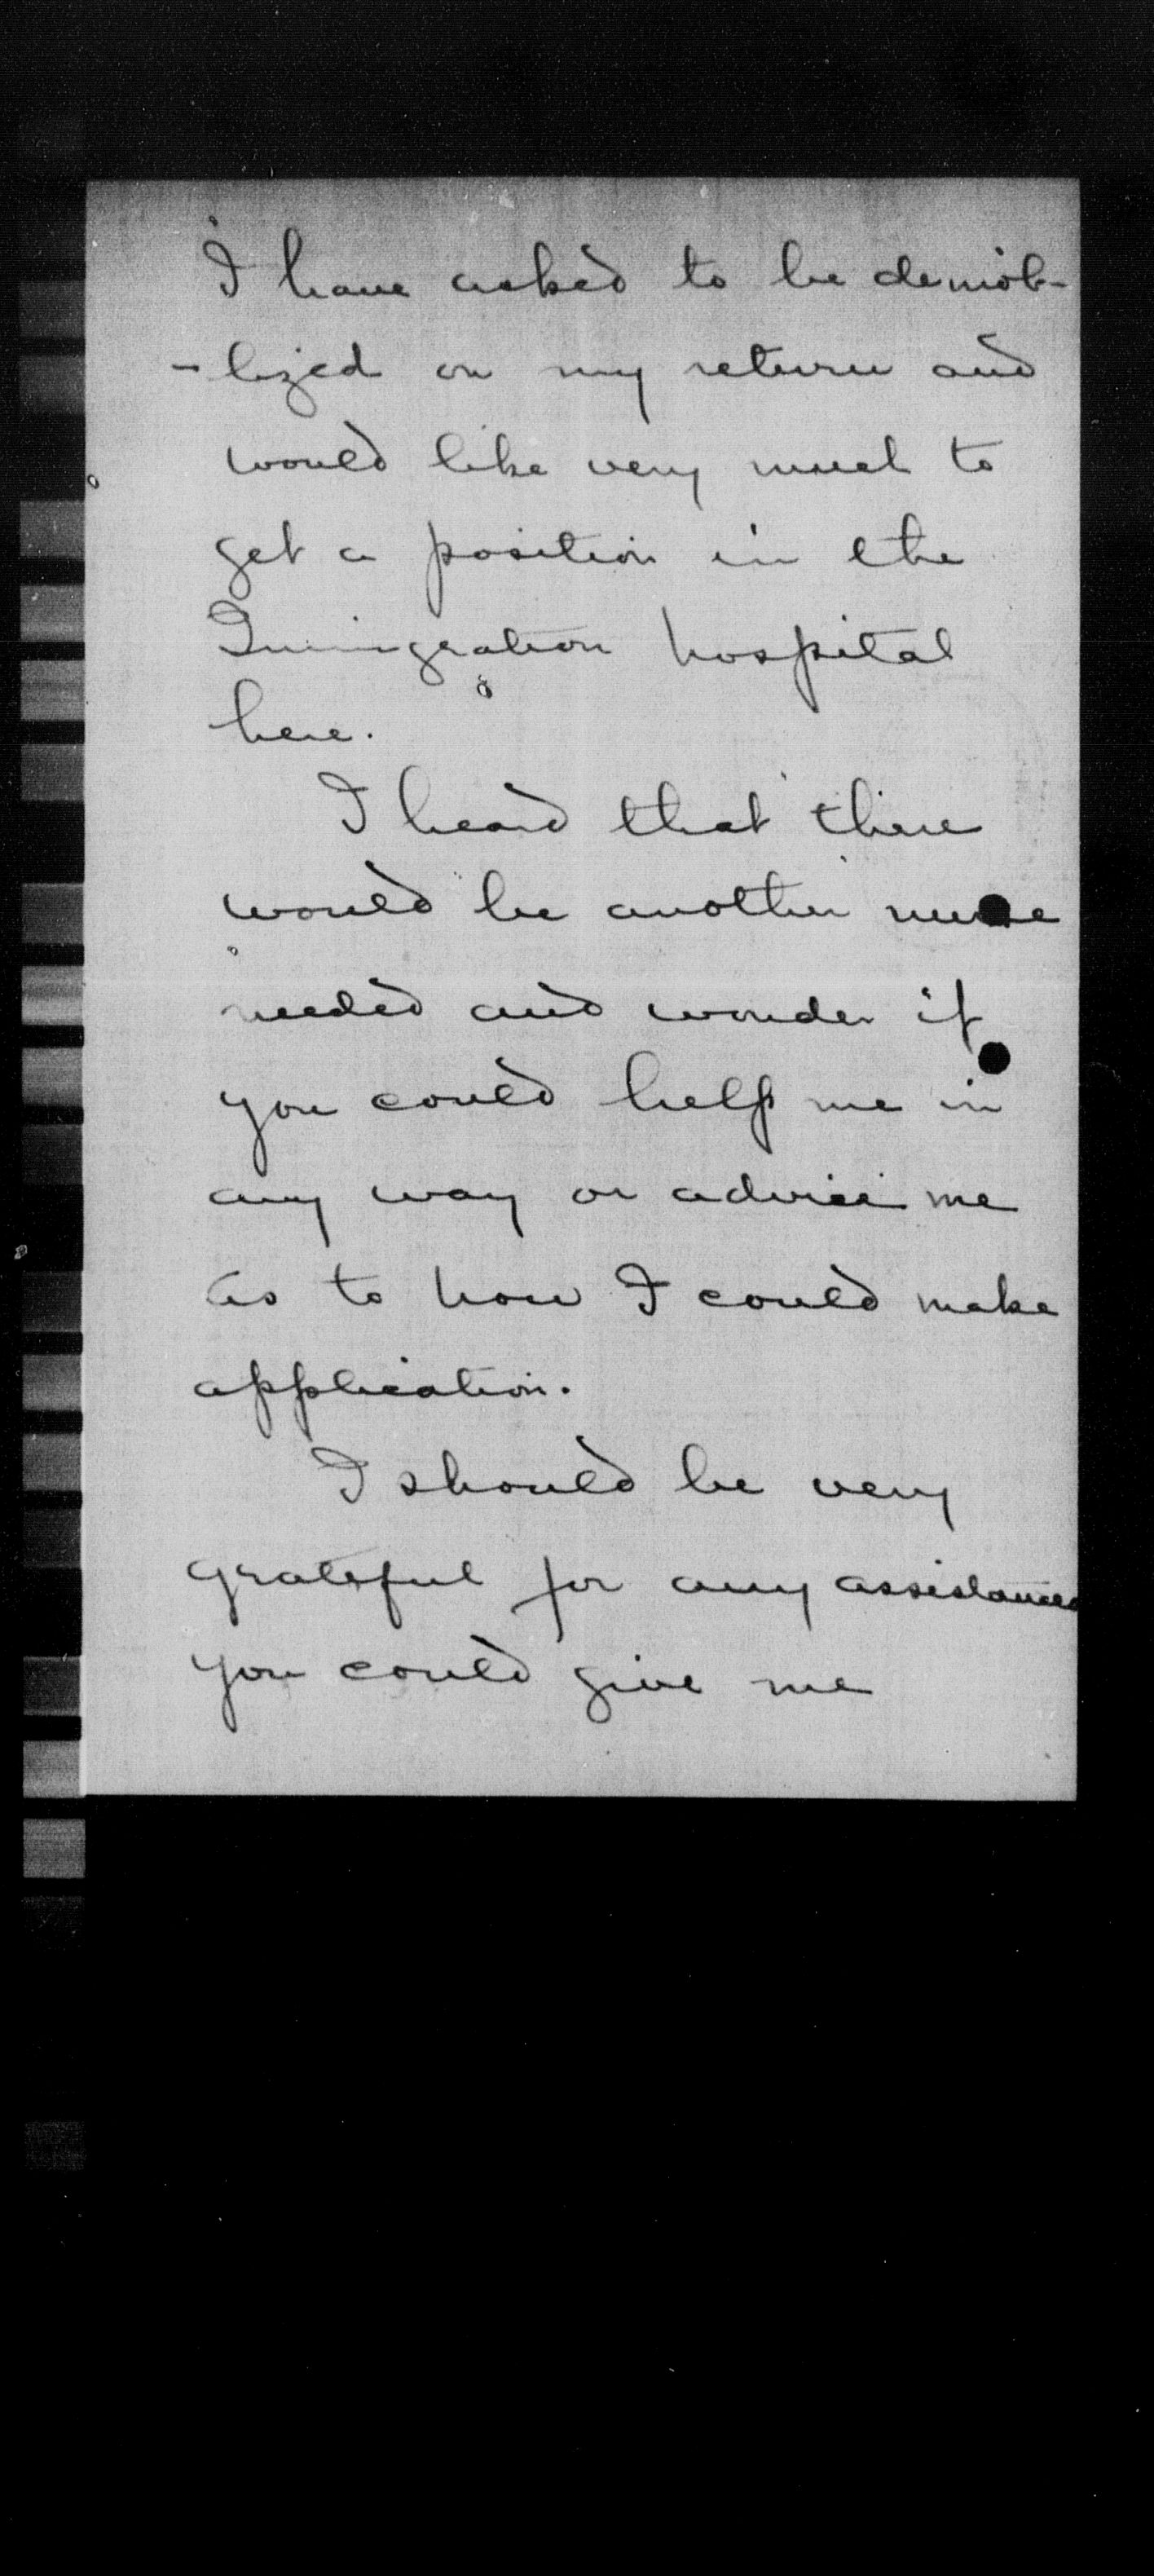 I have asked to be demob-
-lized on my return and
would like very much to
get a position in the
Immigration hospital
here.
I heard that there
would be another nurse
needed and wonder if
you could help me in
any way or advise me
as to how I could make
application.
I should be very
grateful for any assistance
you could give me